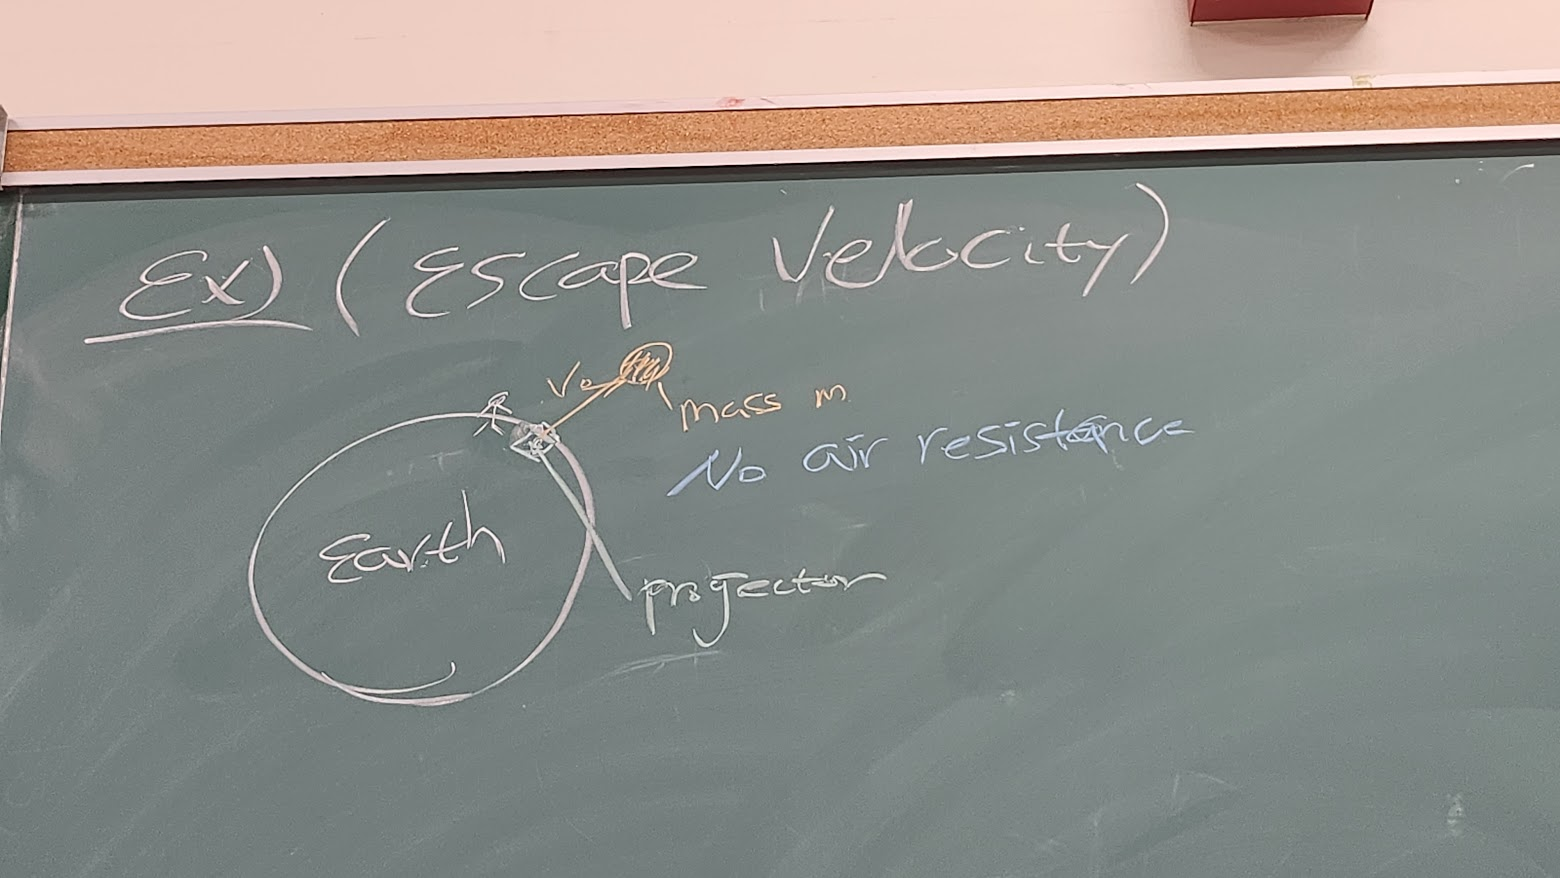 Ex) (Escape Velocity)
V₀
mass m
No air resistance
Earth
projector